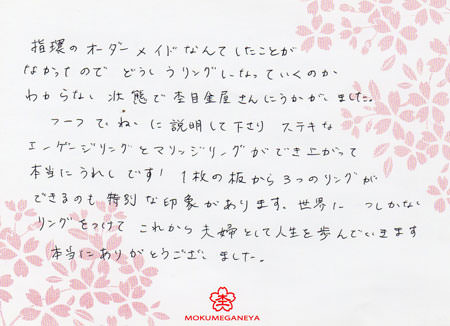 指環のオーダーメイドなんてしたことが
なかったので どういうリングになっていくのか
わからない 状態で杢目金屋さんにうかがいました。
一つ一つ ていねいに説明して下さり ステキな
エンゲージリングとマリッジリングができ上がって
本当にうれしいです! 1枚の板から3つのリングが
できるのも 特別な印象があります。世界に一つしかない
リングをつけて これから夫婦として人生を歩んでいきます
本当にありがとうございました。
杢
MOKUMEGANEYA